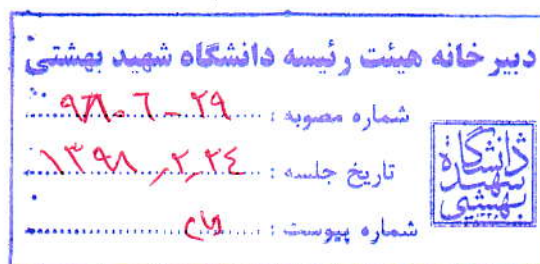 دبیرخانه هیئت رئیسه دانشگاه شهید بهشتی
شماره مصوبه : ۲۹ - ۶ - ۹۸
تاریخ جلسه : ۱۳۹۸٫۲٫۲۴
شماره پیوست :
دانشگاه
شهید
بهشتی